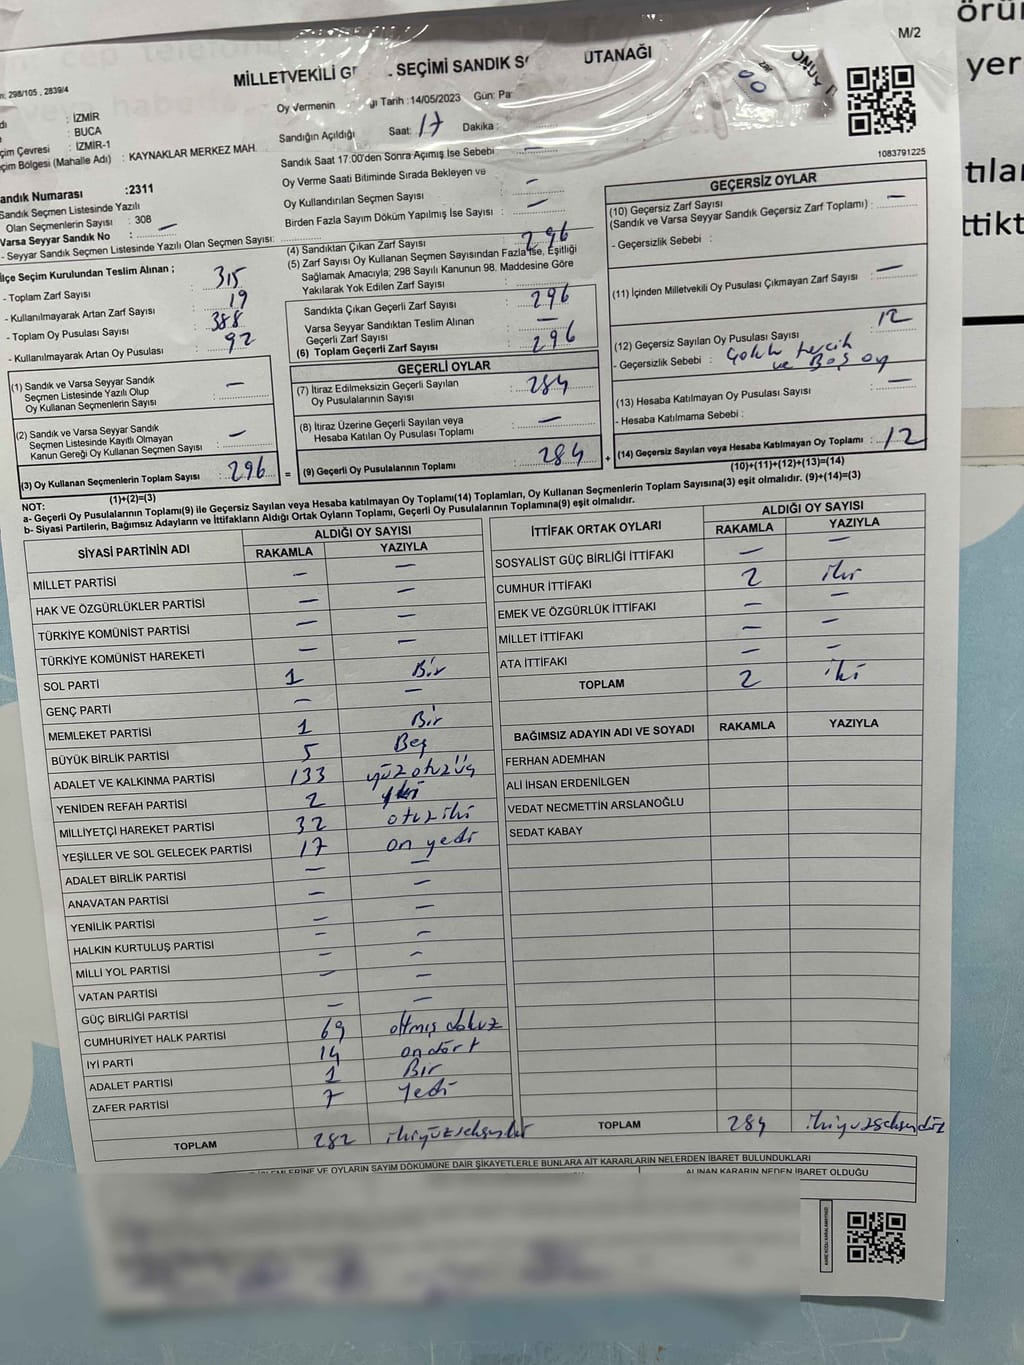 örü
yer
tılar
ttikt
M/2
MİLLETVEKİLİ G SEÇİMİ SANDIK S UTANAĞI
298/105 , 2839/4
: İZMİR
: BUCA
çim Çevresi : İZMİR-1
çim Bölgesi (Mahalle Adı) : KAYNAKLAR MERKEZ MAH.
andık Numarası :2311
Sandık Seçmen Listesinde Yazılı
Olan Seçmenlerin Sayısı : 308
Varsa Seyyar Sandık No : —
- Seyyar Sandık Seçmen Listesinde Yazılı Olan Seçmen Sayısı:
İlçe Seçim Kurulundan Teslim Alınan ;
- Toplam Zarf Sayısı : 315
- Kullanılmayarak Artan Zarf Sayısı : 19
- Toplam Oy Pusulası Sayısı : 388
- Kullanılmayarak Artan Oy Pusulası : 92
(1) Sandık ve Varsa Seyyar Sandık
Seçmen Listesinde Yazılı Olup
Oy Kullanan Seçmenlerin Sayısı : —
(2) Sandık ve Varsa Seyyar Sandık
Seçmen Listesinde Kayıtlı Olmayan
Kanun Gereği Oy Kullanan Seçmen Sayısı : —
(3) Oy Kullanan Seçmenlerin Toplam Sayısı : 296 =
(1)+(2)=(3)
Oy Vermenin Tarih :14/05/2023 Gün: Pa
Sandığın Açıldığı Saat: 17 Dakika :
Sandık Saat 17:00'den Sonra Açımış İse Sebebi : —
Oy Verme Saati Bitiminde Sırada Bekleyen ve
Oy Kullandırılan Seçmen Sayısı : —
Birden Fazla Sayım Döküm Yapılmış İse Sayısı : —
(4) Sandıktan Çıkan Zarf Sayısı : 296
(5) Zarf Sayısı Oy Kullanan Seçmen Sayısından Fazla ise, Eşitliği
Sağlamak Amacıyla; 298 Sayılı Kanunun 98. Maddesine Göre
Yakılarak Yok Edilen Zarf Sayısı :
Sandıkta Çıkan Geçerli Zarf Sayısı : 296
Varsa Seyyar Sandıktan Teslim Alınan
Geçerli Zarf Sayısı : —
(6) Toplam Geçerli Zarf Sayısı : 296
GEÇERLİ OYLAR
(7) İtiraz Edilmeksizin Geçerli Sayılan
Oy Pusulalarının Sayısı : 284
(8) İtiraz Üzerine Geçerli Sayılan veya
Hesaba Katılan Oy Pusulası Toplamı : —
(9) Geçerli Oy Pusulalarının Toplamı : 284 +
1083791225
GEÇERSİZ OYLAR
(10) Geçersiz Zarf Sayısı
(Sandık ve Varsa Seyyar Sandık Geçersiz Zarf Toplamı) : —
- Geçersizlik Sebebi :
(11) İçinden Milletvekili Oy Pusulası Çıkmayan Zarf Sayısı : —
(12) Geçersiz Sayılan Oy Pusulası Sayısı : 12
- Geçersizlik Sebebi : Çoklu tercih
ve Boş oy
(13) Hesaba Katılmayan Oy Pusulası Sayısı : —
- Hesaba Katılmama Sebebi :
(14) Geçersiz Sayılan veya Hesaba Katılmayan Oy Toplamı : 12
(10)+(11)+(12)+(13)=(14)
NOT:
a- Geçerli Oy Pusulalarının Toplamı(9) ile Geçersiz Sayılan veya Hesaba katılmayan Oy Toplamı(14) Toplamları, Oy Kullanan Seçmenlerin Toplam Sayısına(3) eşit olmalıdır. (9)+(14)=(3)
b- Siyasi Partilerin, Bağımsız Adayların ve İttifakların Aldığı Ortak Oyların Toplamı, Geçerli Oy Pusulalarının Toplamına(9) eşit olmalıdır.
SİYASİ PARTİNİN ADI ALDIĞI OY SAYISI
RAKAMLA YAZIYLA
MİLLET PARTİSİ — —
HAK VE ÖZGÜRLÜKLER PARTİSİ — —
TÜRKİYE KOMÜNİST PARTİSİ — —
TÜRKİYE KOMÜNİST HAREKETİ — —
SOL PARTİ 1 Bir
GENÇ PARTİ — —
MEMLEKET PARTİSİ 1 Bir
BÜYÜK BİRLİK PARTİSİ 5 Beş
ADALET VE KALKINMA PARTİSİ 133 yüzotuzüç
YENİDEN REFAH PARTİSİ 2 iki
MİLLİYETÇİ HAREKET PARTİSİ 32 otuziki
YEŞİLLER VE SOL GELECEK PARTİSİ 17 on yedi
ADALET BİRLİK PARTİSİ — —
ANAVATAN PARTİSİ — —
YENİLİK PARTİSİ — —
HALKIN KURTULUŞ PARTİSİ — —
MİLLİ YOL PARTİSİ — —
VATAN PARTİSİ — —
GÜÇ BİRLİĞİ PARTİSİ — —
CUMHURİYET HALK PARTİSİ 69 altmış dokuz
İYİ PARTİ 14 ondört
ADALET PARTİSİ 1 Bir
ZAFER PARTİSİ 7 Yedi
TOPLAM 282 ikiyüzseksen
İTTİFAK ORTAK OYLARI ALDIĞI OY SAYISI
RAKAMLA YAZIYLA
SOSYALİST GÜÇ BİRLİĞİ İTTİFAKI — —
CUMHUR İTTİFAKI 2 iki
EMEK VE ÖZGÜRLÜK İTTİFAKI — —
MİLLET İTTİFAKI — —
ATA İTTİFAKI — —
TOPLAM 2 iki
BAĞIMSIZ ADAYIN ADI VE SOYADI RAKAMLA YAZIYLA
FERHAN ADEMHAN
ALİ İHSAN ERDENİLGEN
VEDAT NECMETTİN ARSLANOĞLU
SEDAT KABAY
TOPLAM 284 ikiyüzseksendört
İŞLEMLERİNE VE OYLARIN SAYIM DÖKÜMÜNE DAİR ŞİKAYETLERLE BUNLARA AİT KARARLARIN NELERDEN İBARET BULUNDUKLARI
ALINAN KARARIN NEDEN İBARET OLDUĞU